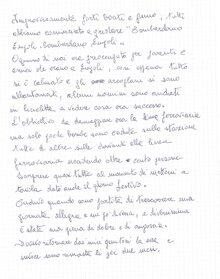 Improvvisamente forti boati e fumo, tutti
abbiamo cominciato a gridare "Bombardano
Empoli, Bombardano Empoli".
Ognuno di noi era preoccupato per parenti e
amici che erano a Empoli, ma appena tutto
si è calmato e gli aeroplani si sono
allontanati, alcuni uomini sono andati
in bicicletta a vedere cosa era successo.
L'obiettivo da danneggiare era la linea ferroviaria
ma solo poche bombe sono cadute sulla stazione
tutte le altre sulle case alla linea
ferroviaria uccidendo oltre cento persone
Sorprese quasi tutte al momento di mettersi a
tavola dato che il giorno festivo.
Quindi quando sono partita di trascorrere una
giornata allegra e un po' diversa, e diversissima
è stata ma piena di dolore e di angoscia.
Dovevo ritornare dai miei genitori la sera e
invece sono rimasta lì per due mesi.